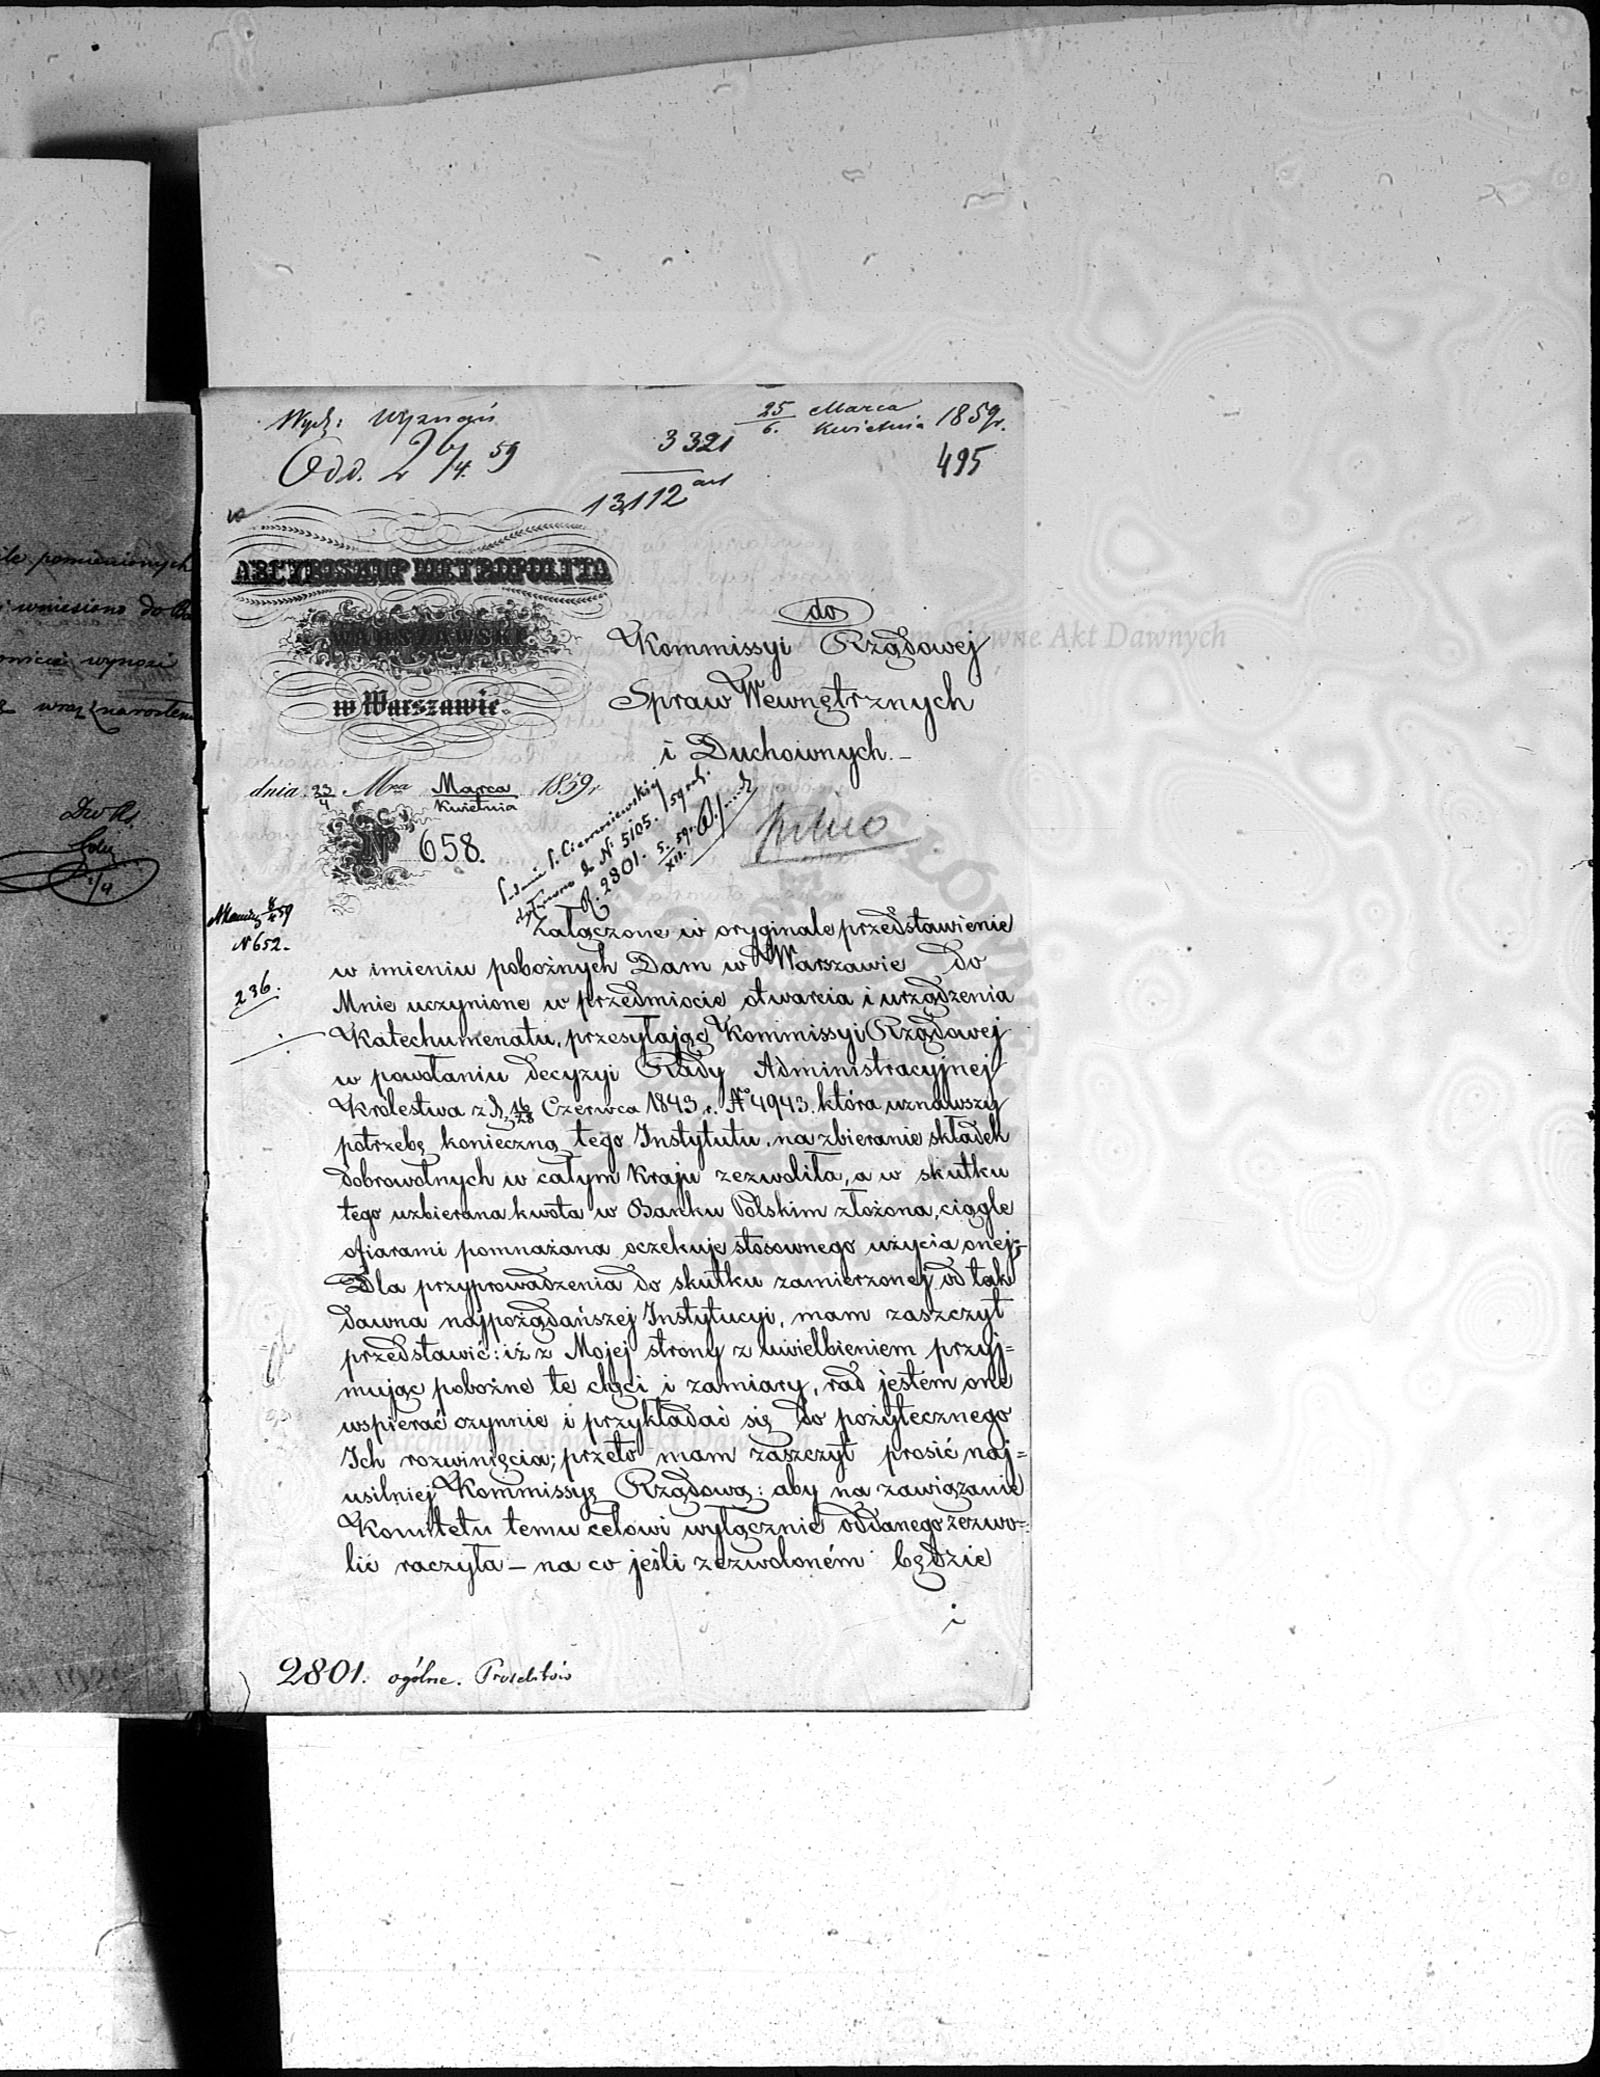 ile pomienionych
wniesiono do
wynosi
wraz z narosłem
Wydz: Wyznań
25/6. Marca/Kwietnia 1859r.
Odd. 2 6/4. 59
3321
495
13,112
ARCYBISKUP METROPOLITA
WARSZAWSKI
w Warszawie.
do
Kommissyi Rządowej
Spraw Wewnętrznych
i Duchownych.–
dnia 23/4 Mca Marca/Kwietnia 1859r
Nº 658.
do Nº 5105.
R. 2801. 5./XII. 59r.
pilno
Nº 652.
236.
Załączone w oryginale przedstawienie
w imieniu pobożnych Dam w Warszawie do
Mnie uczynione w przedmiocie otwarcia i urządzenia
Katechumenatu, przesyłając Kommissyi Rządowej
w powołaniu decyzyi Rady Administracyjnej
Królestwa z d. 16/28 Czerwca 1843 r. Nº 4943. która uznawszy
potrzebę konieczną tego Instytutu, na zbieranie składek
dobrowolnych w całym Kraju zezwoliła, a w skutku
tego uzbierana kwota w Banku Polskim złożona, ciągle
ofiarami pomnażana oczekuje stosownego użycia onej;–
Dla przyprowadzenia do skutku zamierzonej od tak
dawna najpożądańszej Instytucyi, mam zaszczyt
przedstawić: iż z Mojej strony z uwielbieniem przyj=
mując pobożne te chęci i zamiary, rad jestem one
wspierać czynnie i przykładać się do pożytecznego
Ich rozwinięcia; przeto mam zaszczyt prosić naj=
usilniej Kommissyę Rządową: aby na zawiązanie
Komitetu temu celowi wyłącznie oddanego zezwo=
lić raczyła – na co jeśli zezwoloném będzie
i
2801. ogólne. Prozelitów
Archiwum Główne Akt Dawnych
Archiwum Główne Akt Dawnych